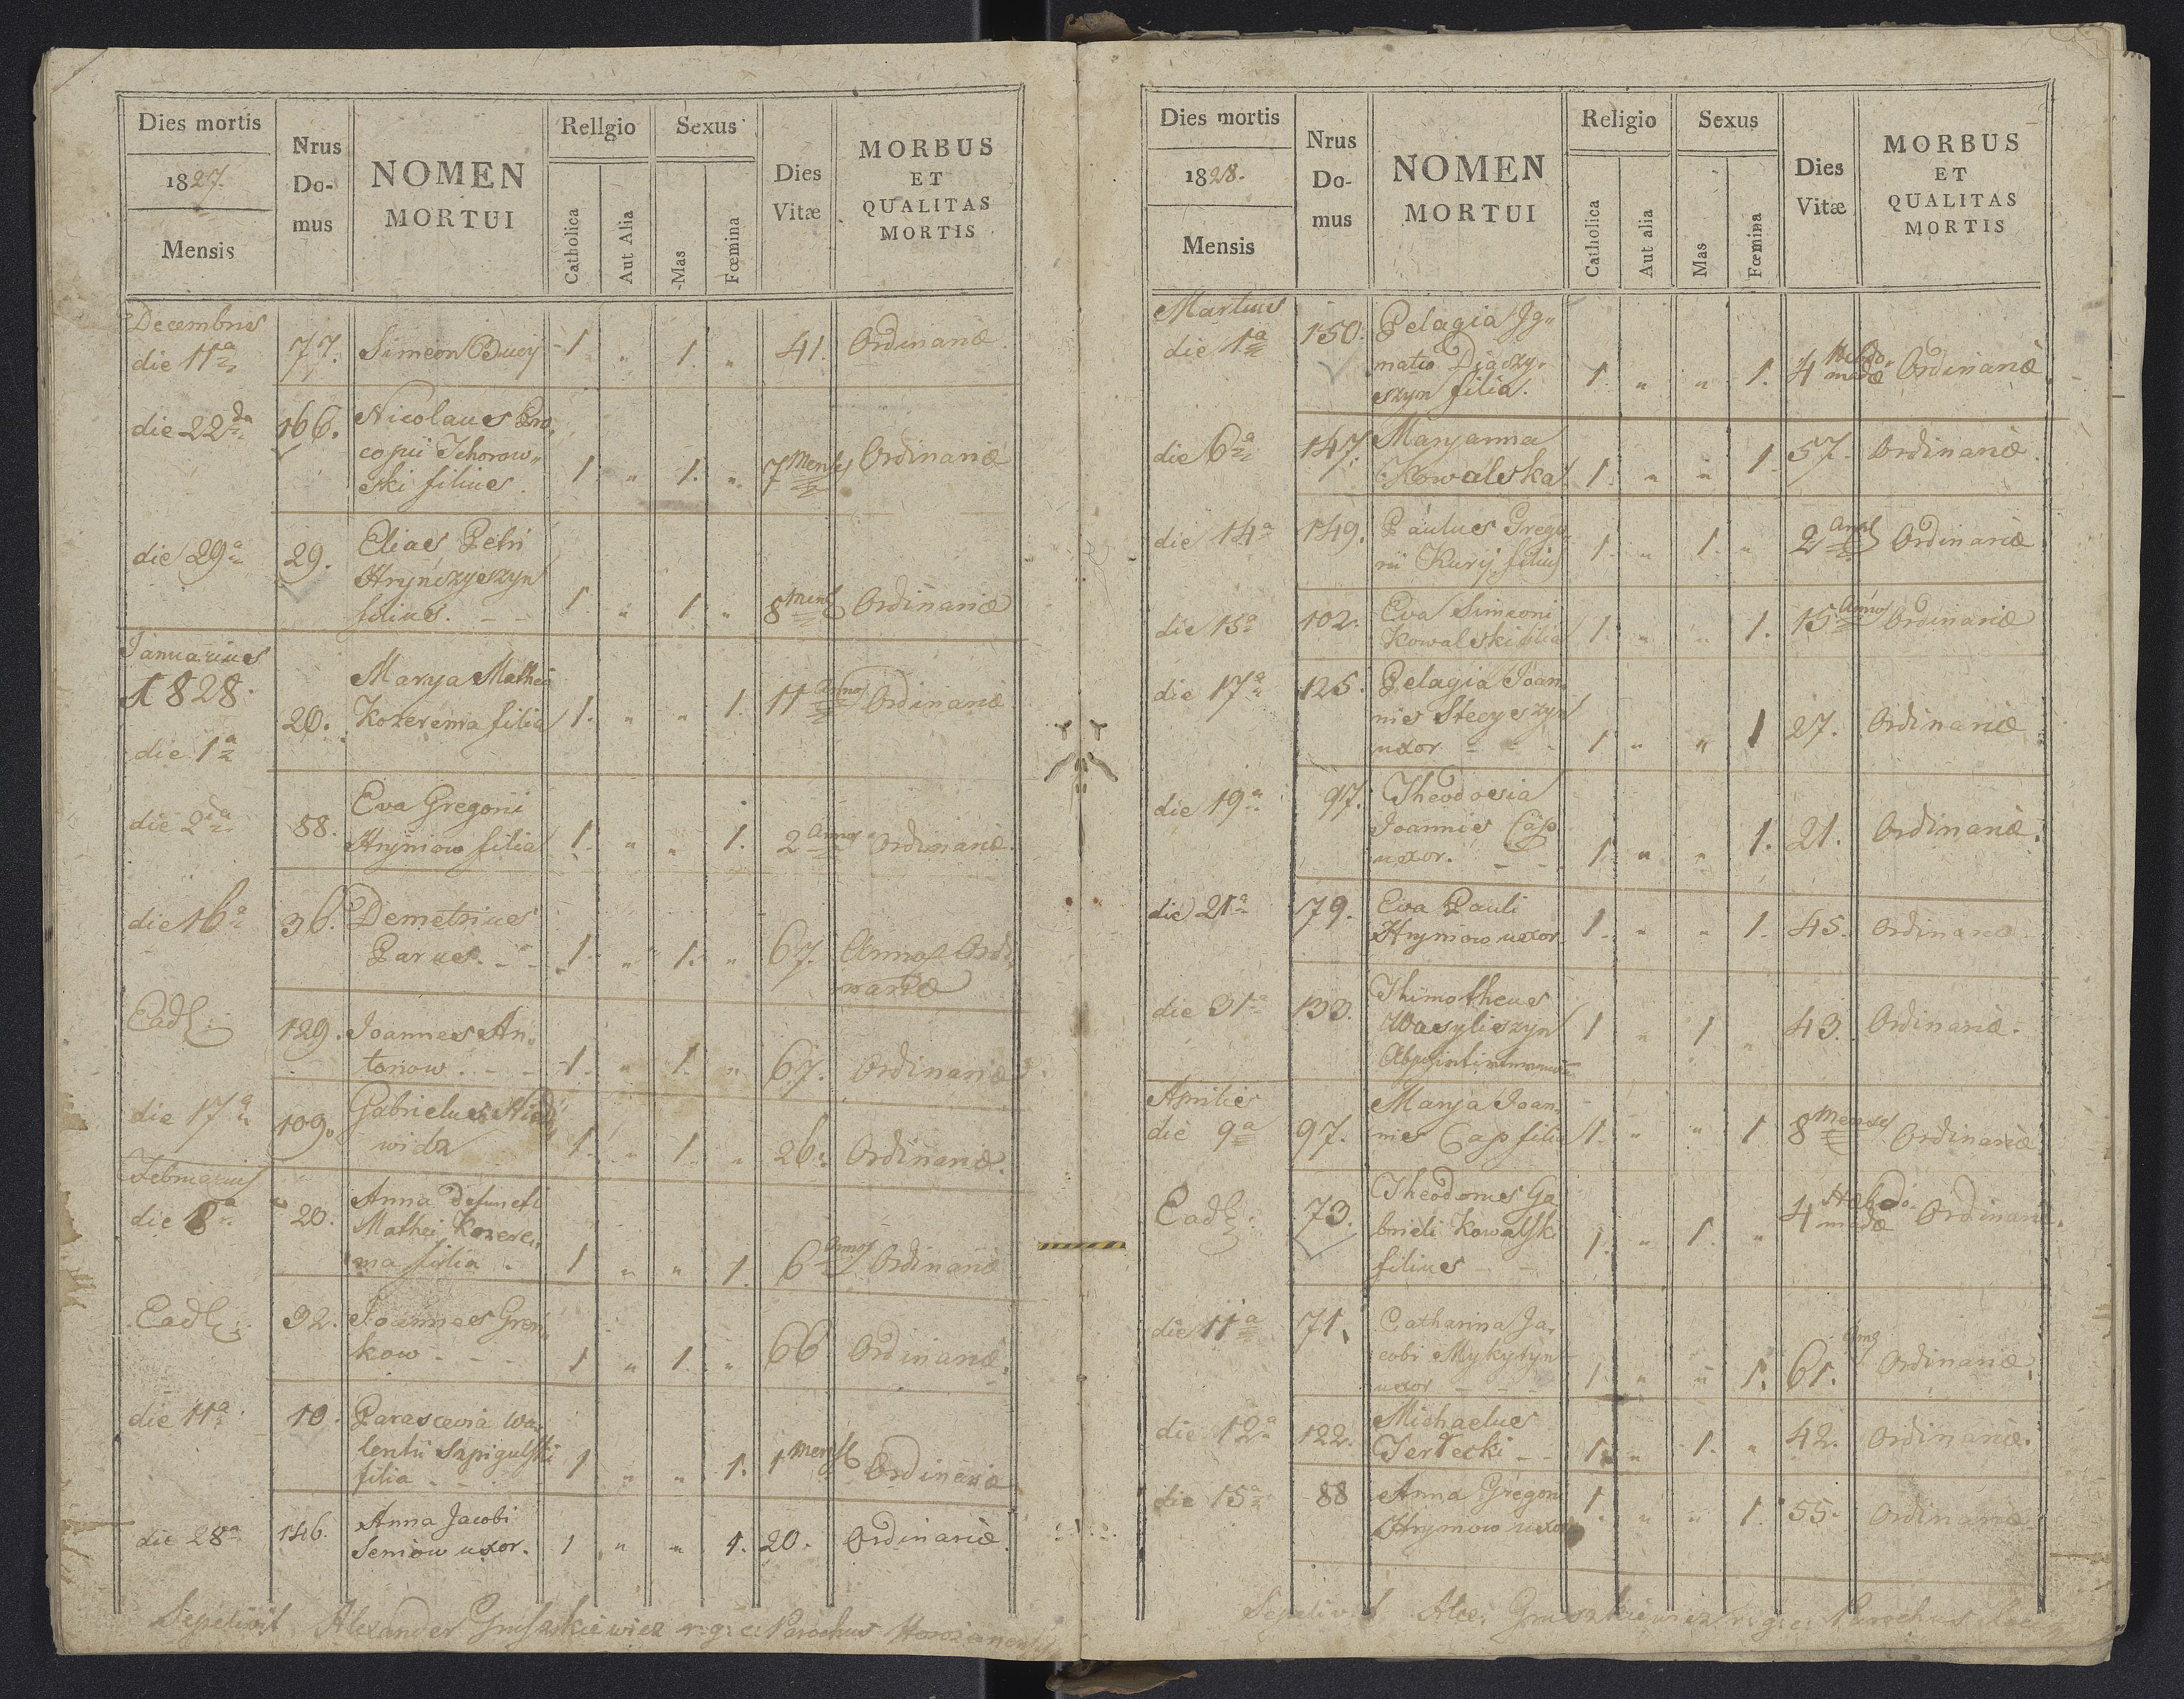 Dies mortis
1827.
Mensis
Nrus
Do-
mus
NOMEN
MORTUI
Rellgio
Catholica
Aut Alia
Sexus
Mas
Fœmina
Dies
Vitæ
MORBUS
ET
QUALITAS
MORTIS
Decembris
die 11a 77. Simeon Bucÿ 1 " 1. " 41. Ordinariæ.
die 22da 166. Nicolaus Pro,
copii Ichorow,,
ski filius. 1. " 1. " 7 Menses Ordinariæ
die 29a 29. Elias Petri
Hryńczyszyn
filius. - - 1 " 1. " 8 Mens Ordinariæ
Januarius
1828.
die 1a 20. Marya Mathei
Kozerema filia 1. " " 1. 11 annos Ordinariæ
die 2da 88. Eva Gregorii
Hryniow filia 1. " " 1. 2 annos Ordinariæ.
die 16a 36. Demetrius
Parus. - - 1. " 1. " 67. Annos Ordi,
nariæ
Ead: 129. Joannes An,
toniow. - - 1. " 1. " 67. Ordinariæ
die 17a 109. Gabrielus Nied,
widz 1. " 1. " 26. Ordinariæ.
Februarius
die 8a 20. Anna defuncti
Mathei Kozere,,
ma filia. 1 " " 1. 6 annos Ordinariæ
Ead: 32. Joannes Gren,,
kow - - - 1 " 1. " 66. Ordinariæ.
die 11a 10. Parascevia Wa,
lentii Szpigulski
filia - - 1 " " 1. 1 mens Ordinariæ
die 28a 146. Anna Jacobi
Seniow uxor. 1 " " 1. 20. Ordinariæ.
Sepelivit Alexander Gruszkiewicz r: g: c: Parochus
Dies mortis
1828.
Mensis
Nrus
Do-
mus
NOMEN
MORTUI
Religio
Catholica
Aut alia
Sexus
Mas
Fœmina
Dies
Vitæ
MORBUS
ET
QUALITAS
MORTIS
Martius
die 1a 150. Pelagia Ig,,
natio Diaczy,
szyn filia. 1. " " 1. 4 Hebdo,
madæ Ordinariæ.
die 6a 147. Maryanna
Kowalska 1. " " 1. 57. Ordinariæ.
die 14a 149. Paulus Grego,
rii Kurij filius 1. " 1. " 2 annos Ordinariæ
die 15a 102. Eva Simeoni
Kowalski filia 1. " " 1. 15 Annos Ordinariæ
die 17a 125. Pelagia Joan,
nis Stecyszyn
uxor - - - 1 " " 1 27. Ordinariæ
die 19a 97. Theodosia
Joannis Cap
uxor. - - 1. " " 1. 21. Ordinariæ.
die 21a 79. Eva Pauli
Hryniow uxor. 1. " " 1. 45. Ordinariæ
die 31a 133. Thimotheus
Wasyliszyn 1 " 1 " 43. Ordinariæ.
Aprilis
die 9a 97. Marya Joan,
nis Cap filia 1. " " 1 8 Menses Ordinariæ
Ead: 73. Theodorus Ga
brieli Kowalski
filius - - 1. " 1. " 4 Hebdo,
madæ Ordinariæ.
die 11a 71. Catharina Ja,
cobi Mykytyn
uxor - - - 1. " " 1. 61. Ordinariæ.
die 12a 122. Michaelus
Jertecki - - 1. " 1. " 42. Ordinariæ.
die 15a 88 Anna Gregorii
Hryniow uxor 1. " " 1. 55. Ordinariæ
Sepelivit Alex: Gruszkiewicz r: g: c: Parochus